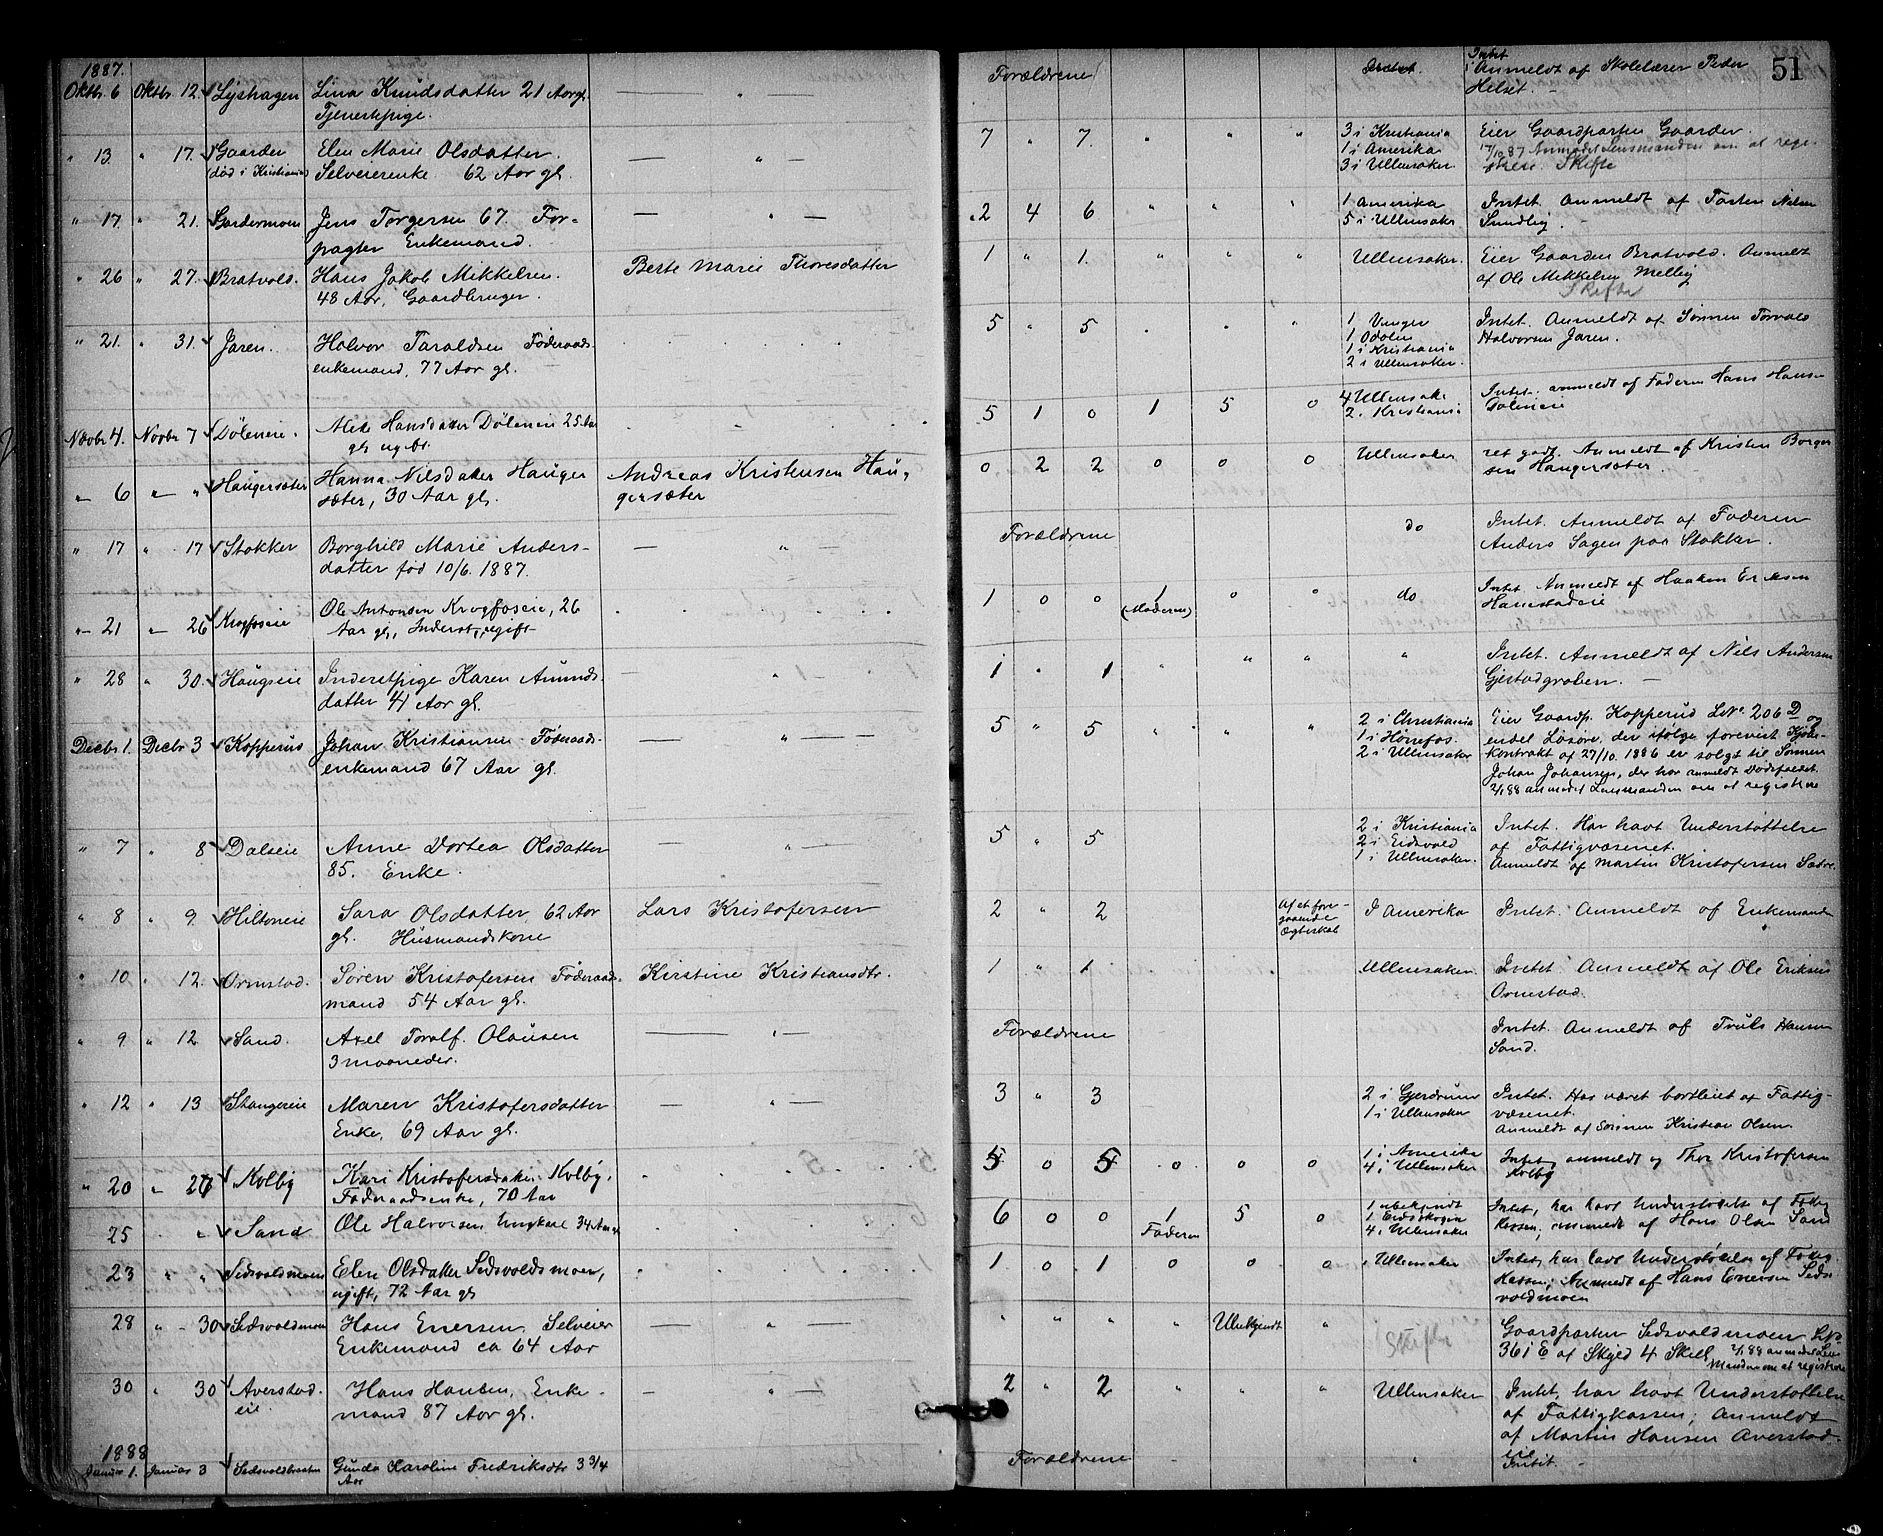 1887.
51
Oktbr. 6 Oktbr. 12. Lyshagen Lina Knudsdatter 21 Aar gl. — " Forældrene Intet. Anmeldt af Skolelærer Peder
Tjenestpige. Helset. —
" 13. " 17. Gaarder Elen Marie Olsdatter. — " — 7 " 7. " " " 3 i Kristiania Eier Gaardparten Gaarder.
(død i Kristiania) Selveierenke. 62 Aar gl. 1 i Amerika 17/10 87 Anmodet Lensmanden om at regi-
3 i Ullensaker strere. Skifte
" 17 " 21. Gardermoen Jens Torgersen 67. For- — " — 2 4 6 " " " 1 Amerika Intet. Anmeldt af Torsten Nilsen
pagter Enkemand. 5 i Ullensaker Sundby.
" 26 " 27. Bratvold. Hans Jakob Mikkelsen. Berte Marie Thoresdatter 1 " 1. " " " Ullensaker. Eier Gaarden Bratvold. Anmeldt
48 Aar, Gaardbruger. af Ole Mikkelsen Melby
Skifte
" 21. " 31. Jaren. Halvor Taraldsen Føderaads- 5 " 5 . " " 1 Vinger Intet. Anmeldt af Sønnen Torvald
enkemand, 77 Aar gl. 1 Odalen Halvorsen Jaren.
1 i Kristiania
2 i Ullensaker.
Novbr 4. Novbr 7 Døleneie. Hansdatter Døleneie 25 Aar 5 1 0 1 5 0 4 Ullensaker Intet. anmeldt af Faderen Hans Hansen
gl. ugift. 2. Kristiania Døleneie
" 6 " " Haugersæter Hanna Nilsdatter Hauger Andreas Kristensen Hau- 0 2 2 0 0 0 Ullensaker ret godt. Anmeldt af Kristen Borger
sæter, 30 Aar gl. gersæter sen Haugersæter.
" 17 " 17 Stokker Borghild Marie Anders- — " — Forældrene do Intet. Anmeldt af Faderen
datter fød 10/6. 1887. Anders Sagen paa Stokker.
" 21 " 26 Krogfoseie Ole Antonsen Krogfoseie, 26 1 0 0 1 0 0 do Intet Anmeldt af Haaken Eriksen
Aar gl., Inderst, ugift (Moderen) Hanestadeie
" 28 " 30. Haugseie Inderstpige Karen Amunds- — " — 1 " 1 " " " " Intet. Anmeldt af Nils Andersen
datter 41 Aar gl. Gjestadgraven. —
Decbr 1. Decbr 3 Kopperud Johan Kristiansen Føderaads- — " — 5 " 5 " " " 2 i Christiania Eier Gaardp. Kopperud LNo. 206 D og
enkemand 67 Aar gl. 1 i Hønefos. endel Løsøre, der ifølge forevist Kjøbe-
2 i Ullensaker kontrakt af 27/10. 1886 er solgt til Sønnen
Johan Johansen, der har anmeldt Dødsfaldet.
2/1 88 anmodet Lensmanden om at registrere
" 7 " 8 Dalseie Anne Dortea Olsdatter — " — 5 " 5 2 i Kristiania Intet. Har havt Understøttelse
85. Enke. 2 i Eidsvold af Fattigvæsenet.
1 i Ullensaker. Anmeldt af Martin Kristofersen Sætre.
" 8 " 9. Hiltoneie Sara Olsdatter, 62 Aar Lars Kristofersen 2 " 2 Af et fore- I Amerika Intet. Anmeldt af Enkemanden
gl. Husmandskone gaaende
Ægteskab
" 10 " 12. Ormstad. Søren Kristofersen Føderaads- Kirstine Kristiansdtr. 1 " 1 Ullensaker Intet Anmeldt af Ole Eriksen
mand 54 Aar gl. Ormstad.
" 9 " 12 Sand. Axel Toralf. Olausen — " — Forældrene Intet. Anmeldt af Truls Hansen
3 maaneder. Sand.
" 12 " 13 Stangereie Maren Kristofersdatter — " — 3 " 3 2 i Gjerdrum Intet. Har været bortleiet af Fattig-
Enke, 69 Aar gl. 1 i Ullensaker væsenet.
Anmeldt af Sønnen Kristian Olsen.
" 20 " 27 Kolby Kari Kristofersdatter Kolby, 5 0 5 0 0 0 1 i Amerika Intet, anmeldt af Thor Kristofersen
Føderaadsenke, 70 Aar 4 i Ullensaker Kolby
25 " Sand Ole Halvorsen Ungkarl 34 Aar gl 6 0 0 1 5 0 1 ubekjendt Intet, har havt Understøttelse af Fattig
Faderen 1 Eidskogen kassen, anmeldt af Hans Olsen Sand
4 i Ullensaker
23 " " Sedsvoldsmoen Elen Olsdatter Sedsvoldsmoen, 1 0 1 0 0 0 Ullensaker Intet, har havt Understøttelse af Fattig
ugift, 72 Aar gl kassen, Anmeldt af Hans Enersen Seds
voldsmoen
28 " 30 Sedsvoldsmoen Hans Enersen, Selveier — " — " " " " Ubekjendt " Skifte Gaardparten Sedsvoldsmoen LNo
Enkemand ca 64 Aar 361 E af Skyld 4 Skill 2/1 88 anmodet Lens
manden om at registrere
30 " 30 Averstad- Hans Hansen, Enke- — " — 2 " 2 " " " Ullensaker Intet, har havt Understøttelse
eie. mand 87 Aar gl. af Fattigkassen; Anmeldt
af Martin Hansen Averstad-
eie
1888
Januar 1. Januar 3 Sedsvoldbraaten Gunda Karoline Fredriksdtr 3 3/4 Forældrene Intet. —
Aar